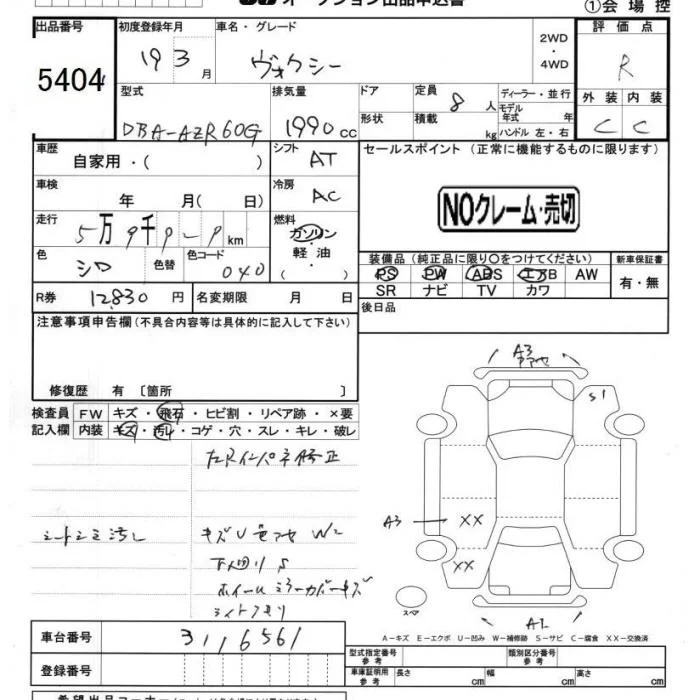 オークション出品申込書
①会場控
出品番号
5404
初度登録年月
19 3 月
車名・グレード
ヴォクシー
2WD
・
4WD
評価点
R
外装 内装
C C
型式
DBA-AZR60G
排気量
1990 cc
ドア
形状
定員
8 人
積載
kg
ディーラー・並行
モデル年式 年
ハンドル 左・右
車歴
自家用・( )
シフト
AT
セールスポイント (正常に機能するものに限ります)
NOクレーム・売切
車検
年 月( 日)
冷房
AC
走行
5万9千 km
燃料
ガソリン
軽・油
( )
色
シロ
色替
色コード
040
装備品(純正品に限り○をつけてください)
新車保証書
PS PW ABS エアB AW
SR ナビ TV カワ
有・無
R券 12,830 円
名変期限 月 日
後日品
注意事項申告欄(不具合内容等は具体的に記入して下さい)
修復歴 有 〔箇所 〕
検査員記入欄
FW キズ・飛石・ヒビ割・リペア跡・×要
内装 キズ・汚レ・コゲ・穴・スレ・キレ・破レ
左Rインパネ修正
シートシミ汚レ
キズU W2
下回りS
ホイールミラーカバーキズ
ライトクモリ
A3
S1
A3
XX
XX
スペア
A2
A-キズ E-エクボ U-凹み W-補修跡 S-サビ C-腐食 XX-交換済
車台番号
3116561
登録番号
型式指定番号 参考
類別区分番号 参考
車庫証明用 参考 長さ cm 幅 cm 高さ cm